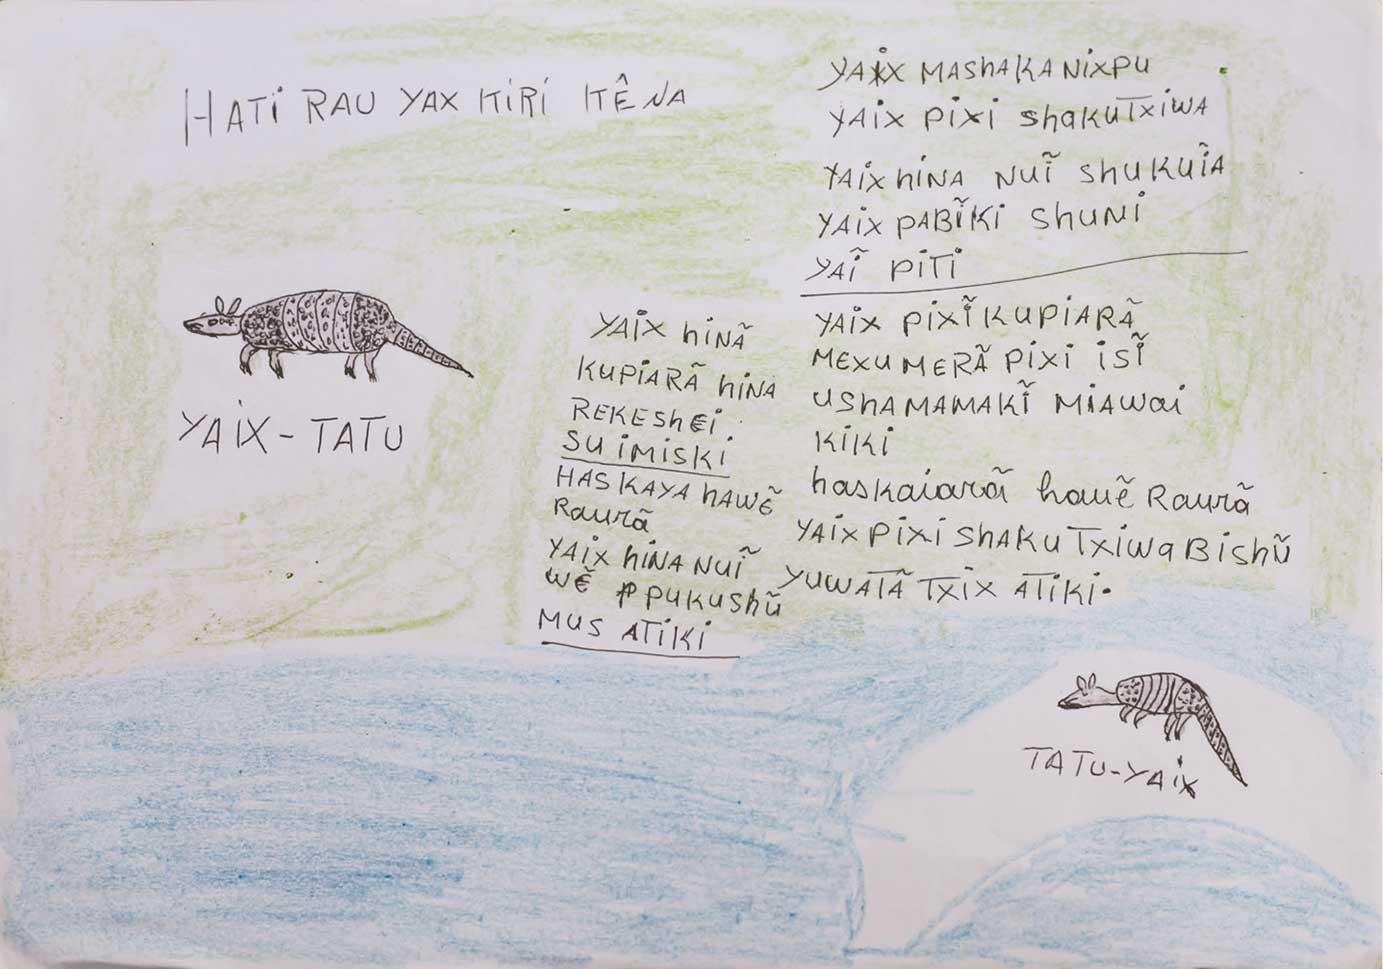 HATi RAU YAX KiRi KÊNA
YAiX - TATU
YAiX hiNÃ
KUPiARÃ hiNA
REKEShEi
SU iMiSKi
HASKAYA hAWẼ
Raurã
YAiX hiNA NUĨ
WẼ PPUKUShŨ
MUS ATiKi
YAiX MAShAKA NiXPU
YAiX PiXi ShaKUTXiWA
YAiX hiNA NUĨ ShUKUĨA
YAiX PABĨKi ShUNi
YAĨ PiTi
YAiX PiXĨ KUPiARÃ
MEXU MERÃ PiXi iSĨ
UShAMAMAKĨ MiAWai
KiKi
haskaiarã hauẽ Raurã
YAiX PiXi ShAKU TXiWa BiShŨ
YUWATÃ TXiX ATiKi.
TATU-YAiX